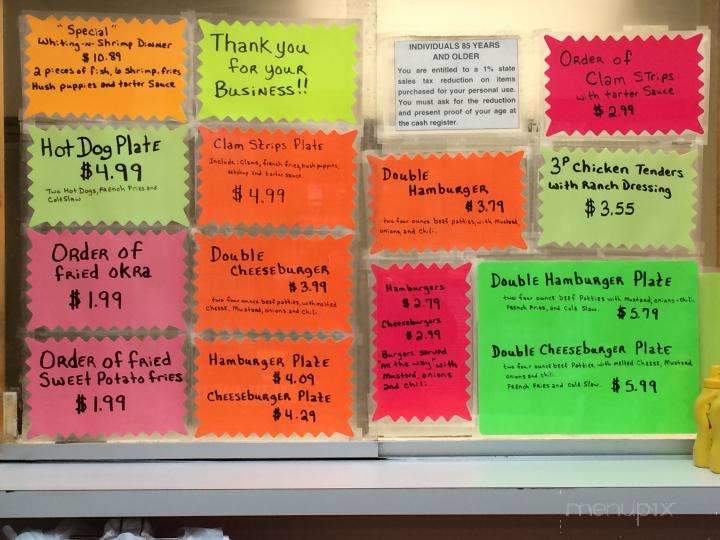 "Special"
Whiting-n-Shrimp Dinner
$10.89
2 pieces of fish, 6 shrimp, fries
Hush puppies and tarter Sauce
Thank you
for your
Business!!
INDIVIDUALS 85 YEARS
AND OLDER
You are entitled to a 1% state
sales tax reduction on items
purchased for your personal use.
You must ask for the reduction
and present proof of your age at
the cash register.
Order of
Clam Strips
with tarter Sauce
$2.99
Hot Dog Plate
$4.99
Two Hot Dogs, French Fries and
Cole Slaw
Clam Strips Plate
Include: Clams, french fries, hush puppies,
ketchup and tartar sauce.
$4.99
Double
Hamburger
$3.79
two four ounce beef patties, with Mustard,
onions, and Chili.
3P Chicken Tenders
with Ranch Dressing
$3.55
Order of
fried okra
$1.99
Double
Cheeseburger
$3.99
two four ounce beef patties, with melted
Cheese, Mustard, onions and Chili.
Hamburgers
$2.79
Cheeseburgers
$2.99
Burgers served
"All the way" with
Mustard, onions
and chili.
Double Hamburger Plate
two four ounce Beef Patties with Mustard, onions-chili.
French Fries, and Cole Slaw.
$5.79
Double Cheeseburger Plate
two four ounce beef Patties, with melted Cheese, Mustard,
onions and chili.
French Fries and Cole Slaw. $5.99
Order of fried
Sweet Potato fries
$1.99
Hamburger Plate
$4.09
Cheeseburger Plate
$4.29
menupix